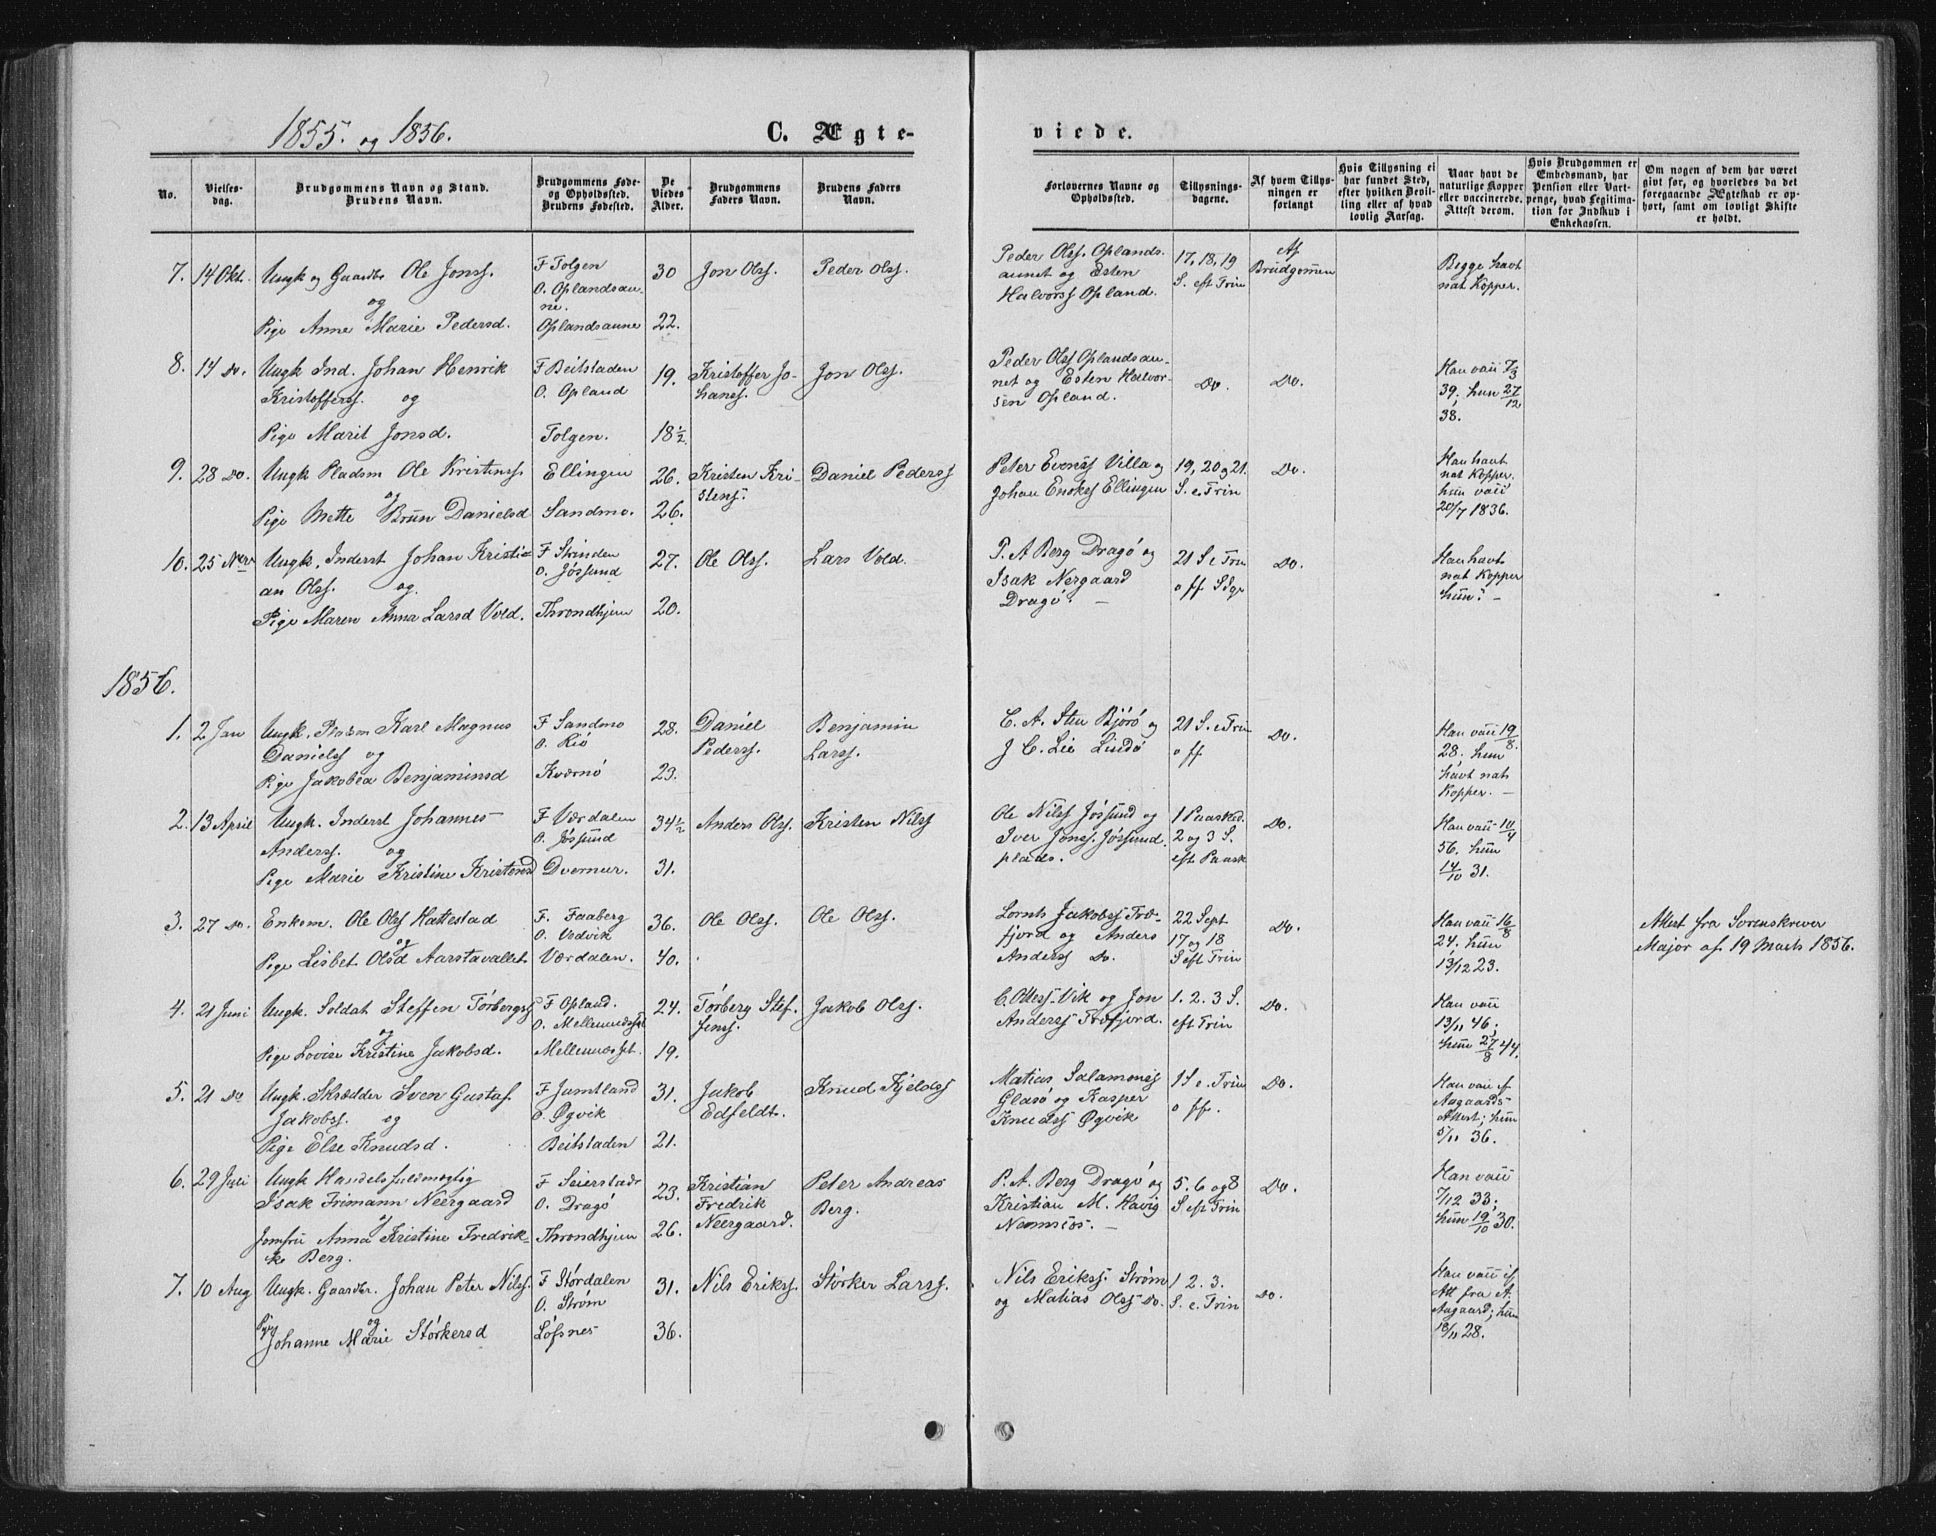 1855. og 1856.
C. Ægte-
viede.
No.
Vielses-
dag.
Brudgommens Navn og Stand.
Brudens Navn.
Brudgommens Føde-
og Opholdssted.
Brudens Fødested.
De
Viedes
Alder.
Brudgommens
Faders Navn.
Brudens Faders
Navn.
Forlovernes Navne og
Opholdssted.
Tillysnings-
dagene.
Af hvem Tillys-
ningen er
forlangt
Hvis Tillysning ei
har fundet Sted,
efter hvilken Bevil-
ling eller af hvad
lovlig Aarsag.
Naar havt de
naturlige Kopper
eller vaccinerede.
Attest derom.
Hvis Brudgommen er
Embedsmand, har
Pension eller Vart-
penge, hvad Legitima-
tion for Indskud i
Enkekassen.
Om nogen af dem har været
gift før, og hvorledes da det
foregaaende Ægteskab er op-
hørt, samt om lovligt Skifte
er holdt.
7. 14 Okt. Ungk og Gaardbr Ole Jonss.
og
Pige Anne Marie Pedersd.
F Tolgen
O. Oplandsau-
ne.
Oplandsaune
30
22.
Jon Olss.
Peder Olss.
Peder Olss. Oplands
aunet og Esten
Halvorss Opland.
17, 18, 19
S. eft Trin
Af
Brudgommen
Begge havt
nat Kopper.
8. 14 Do. Ungk Ind. Johan Henrik
Kristofferss. og
Pige Marit Jonsd.
F Beitstaden
O. Opland
Tolgen.
19.
18½
Kristoffer Jo-
hanss.
Jon Olss.
Peder Olss Oplandsau-
net og Esten Halvor-
sen Opland.
Do.
Do.
Han vacc 7/3
39; hun 27/12
38.
9. 28 Do. Ungk Pladsm Ole Kristenss.
og
Pige Mette Bruun Danielsd
Ellingen
Sandmo.
26.
26.
Kristen Kri-
stens.
Daniel Pederss
Peter Evenss Villa og
Johan Enokss Ellingen
19, 20 og 21.
S. e. Trin
Do.
Han havt
nat Kopper.
hun vacc
20/7 1836.
10. 25 Novr Ungk. Inderst Johan Kristi-
an Olss. og
Pige Maren Anna Larsd Vold.
F Strinden
O. Jøssund
Throndhjem
27.
20.
Ole Olss.
Lars Vold.
P. A Berg Dragø og
Isak Nergaard
Dragø. —
21 S e Trin
o ff Sdge
Do.
Han havt
nat Kopper
hun? —
1856.
1. 2 Jan Ungk. Pladsm Karl Magnus
Danielss og
Pige Jakobea Benjaminsd
F Sandmo
O. Riø
Kværnø
28.
23.
Daniel
Pederss.
Benjamin
Larss.
C. A. Sten Bjørø og
J C. Lie Lindø
21 S. e Trin
o ff
Do.
Han vacc 19/8.
28; hun
havt nat
Kopper. —
2. 13 April Ungk. Inderst Johannes
Anderss. og
Pige Marie Kristine Kristensd
F Værdalen
O. Jøssund
Overmur.
34½
31.
Anders Olss.
Kristen Nilss
Ole Nilss Jøssund og
Iver Jonss. Jøssund.
plads.
1 Paasked.
2 og 3 S.
eft Paask
Do.
Han vacc 10/4
56. hun
14/10 31.
3. 27 Do. Enkem. Ole Olss Hattestad
og
Pige Lisbet Olsd Aarstavallet
F. Faaberg
O. Vedvik
Værdalen.
36.
40.
Ole Olss.
Ole Olss.
Lornts Jakobss Fræ-
fjord og Anders
Anderss Do.
22 Sept
17 og 18
S eft Trin
Do.
Han vacc 16/8
24. hun
13/12 23.
Attest fra Sorenskriver
Major af 19 Marts 1856.
4. 21 Juni Ungk. Soldat Steffen Torbergss
og
Pige Lovise Kristine Jakobsd.
F Opland.
O. Mellemnesset
Mellemnesset.
24.
19.
Torberg Stef-
fenss.
Jakob Olss.
C. Otterss. Vik og Jon
Anderss Fræfjord.
1. 2. 3 S.
eft Trin
Do.
Han vacc
13/11 46;
hun 27/8 44.
5. 21 Do Ungk. Skrædder Sven Gustaf
Jakobss. og
Pige Else Knudsd.
F Jamtland
O. Øgvik
Beitstaden
31.
21.
Jakob
Edfeldt.
Knud Kjeldss
Matias Salamonss
Glasø og Kasper
Knudss Øgvik
1 S e. Trin
o ff.
Do.
Han vacc if
Aagaards
Attest; hun
5/11 36.
6. 29 Juli Ungk Handelsfuldmægtig
Isak Frimann Neergaard
og
Jomfru Anna Kristine Fredrik-
ke Berg.
F Seierstad
O. Dragø
Throndhjem
23.
26.
Kristian
Fredrik
Neergaard.
Peter Andreas
Berg.
P. A. Berg Dragø og
Kristian M. Havig
Nemnsos. —
5. 6 og 8
S ep Trin
Do.
Han vacc
7/12 33;
hun 19/10 30.
7. 10 Aug Ungk. Gaardbr. Johan Peter Nilss.
og
Pige Johanne Marie Størkersd
F Stordalen
O. Strøm
Løfsnes
31.
36.
Nils Erikss.
Størker Larss.
Nils Erikss. Strøm
og Matias Olss Do.
1 2. 3.
S. e. Trin
Do.
Han vacc if
Att fra A.
Aagaard; hun
18/11 28.